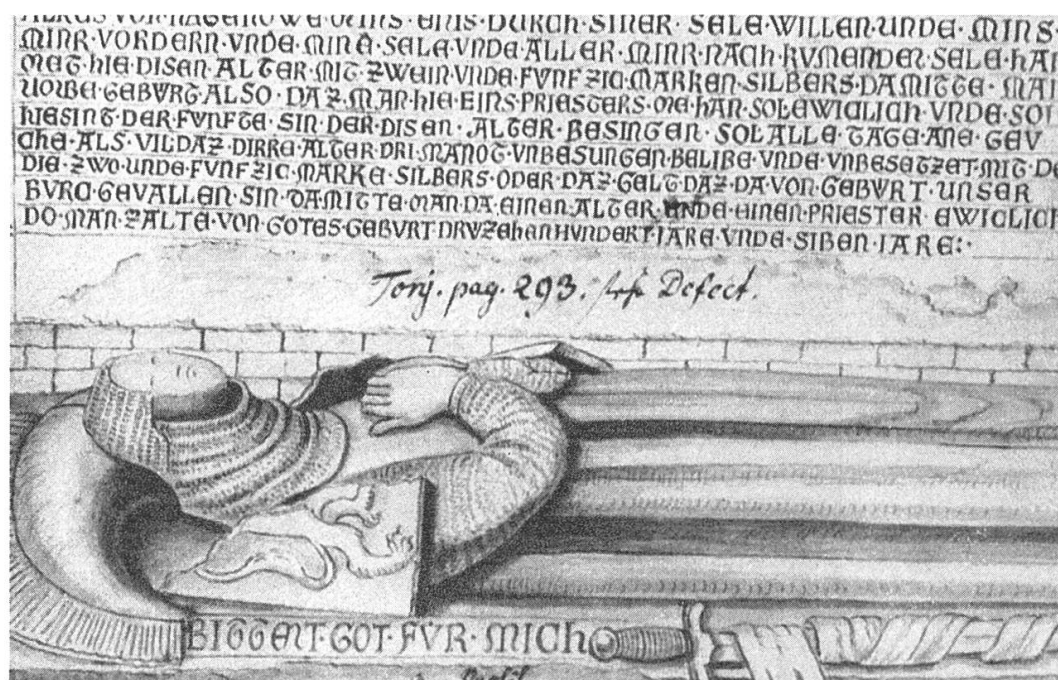 VON HAGENOWE DURCH SINER SELE WILLEN UNDE MINS
MINR·VORDERN·VNDE·MINE·SELE·VNDE·ALLER·MINR·NACH·KVMENDEN·SELE·HAT
HIE·DISEN·ALTER·MIT·ZWEIN·VNDE·FVNFZIC·MARKEN·SILBERS·DAMITTE·MAN
GEBVRT·ALSO·DAZ·MAN·HIE·EINS·PRIESTERS·ME·HAN·SOL·EWICLICH·VNDE·SOL
DER·FVNFTE·SIN·DER·DISEN·ALTER·BESINGEN·SOL·ALLE·TAGE·ANE·GEV
CHE·ALS·VIL·DAZ·DIRRE·ALTER·DRI·MANOT·VNBESUNGEN·BELIBE·VNDE·VNBESETZET·MIT·DE
DIE·ZWO·UNDE·FVNFZIC·MARKE·SILBERS·ODER·DAZ·GELT·DAZ·DA·VON·GEBVRT·UNSER
BVRC·GEVALLEN·SIN·DAMITTE·MAN·DA·EINEN·ALTER·ENDE·EINEN·PRIESTER·EWICLICH
DO·MAN·ZALTE·VON·GOTES·GEBVRT·DRVZEHENHVNDERT·IARE·VNDE·SIBEN·IARE:·
pag. 293. Defect.
BITTENT·GOT·FVR·MICH